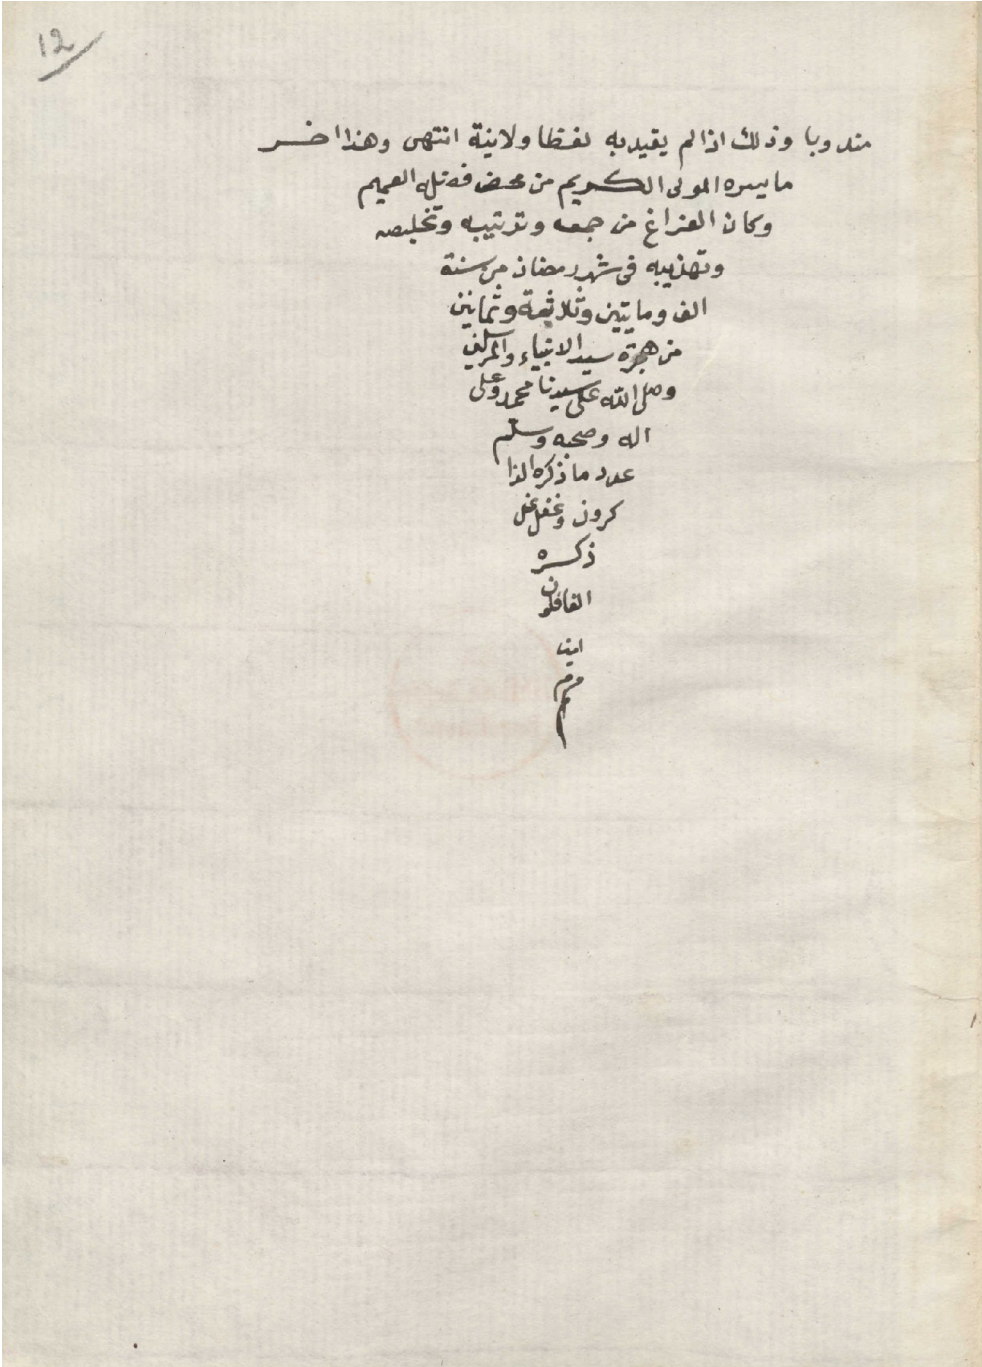 12
مندوبا وذلك اذا لم يقيد به لفظا ولا نية انتهى وهذا اخر
ما يسره المولى الكريم من محض فضله العميم
وكان الفراغ من جمعه وترتيبه وتخليصه
وتهذيبه فى شهر رمضان من سنة
الف ومايتين وثلاثة وثمانين
من هجرة سيد الانبياء والمرسلين
وصلى الله على سيدنا محمد وعلى
اله وصحبه وسلم
عدد ما ذكره الذا
كرون وغفل عن
ذكره
الغافلون
امين